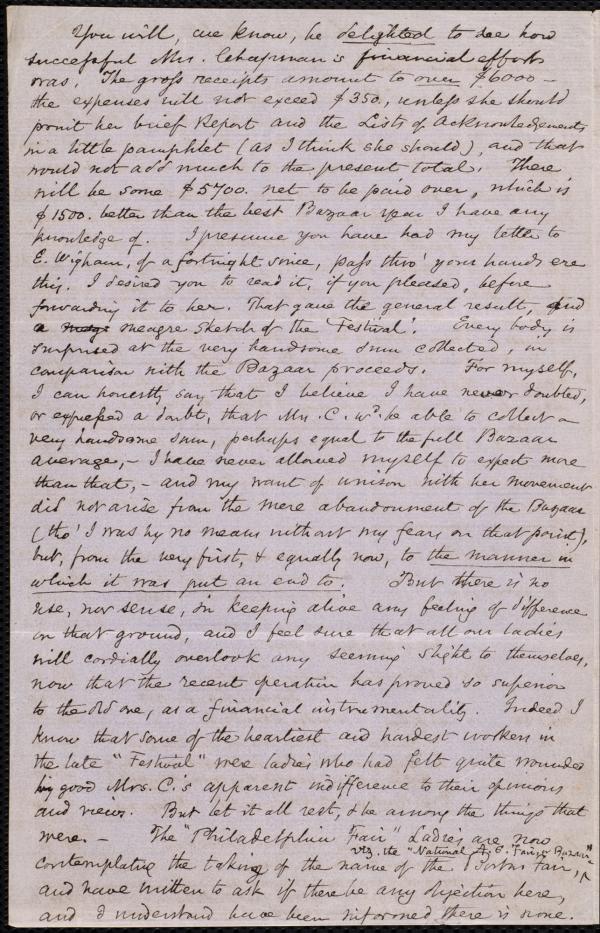 You will, we know, be delighted to see how
successful Mrs. Chapman's financial effort
was. The gross receipts amount to over $6000 —
the expenses will not exceed $350., unless she should
print her brief Report and the Lists of Acknowledgements
in a little pamphlet (as I think she should), and that
would not add much to the present total. There
will be some $5700. net to be paid over, which is
$1500. better than the best Bazaar year I have any
knowledge of. I presume you have had my letter to
E. Wigham, of a fortnight since, pass thro' your hands ere
this. I desired you to read it, if you pleased, before
forwarding it to her. That gave the general result, and
a meagre sketch of the "Festival". Every body is
surprised at the very handsome sum collected, in
comparison with the Bazaar proceeds. For myself,
I can honestly say that I believe I have never doubted,
or expressed a doubt, that Mrs. C. wd. be able to collect a
very handsome sum, perhaps equal to the full Bazaar
average, — I have never allowed myself to expect more
than that, — and my want of unison with her movement
did not arise from the mere abandonment of the Bazaar
(tho' I was by no means without my fears on that point),
but, from the very first, & equally now, to the manner in
which it was put an end to. But there is no
use, nor sense, in keeping alive any feeling of difference
on that ground, and I feel sure that all our ladies
will cordially overlook any seeming slight to themselves,
now that the recent operation has proved so superior
to the old one, as a financial instrumentality. Indeed I
know that some of the heartiest and hardest workers in
the late "Festival" were ladies who had felt quite wounded
by good Mrs. C.'s apparent indifference to their opinions
and views. But let it all rest, & be among the things that
were. — The "Philadelphia Fair" Ladies are now
viz. the "National A. S. Fair or Bazaar"
contemplating the taking of the name of the Boston Fair,
and have written to ask if there be any objection here,
and I understand have been informed there is none.